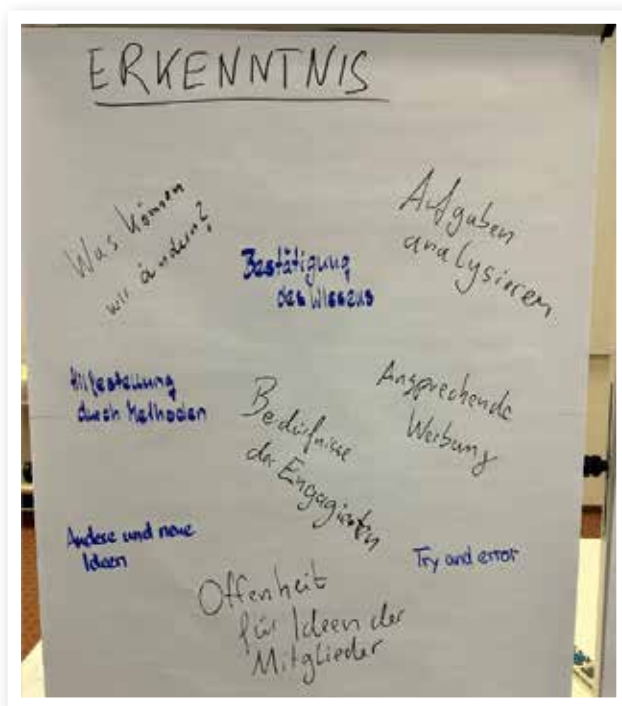 ERKENNTNIS
Was können
wir ändern?
Aufgaben
analysieren
Bestätigung
des Wissens
Hilfestellung
durch Methoden
Bedürfnisse
der Engagierten
Ansprechende
Werbung
Andere und neue
Ideen
Try and error
Offenheit
für Ideen der
Mitglieder